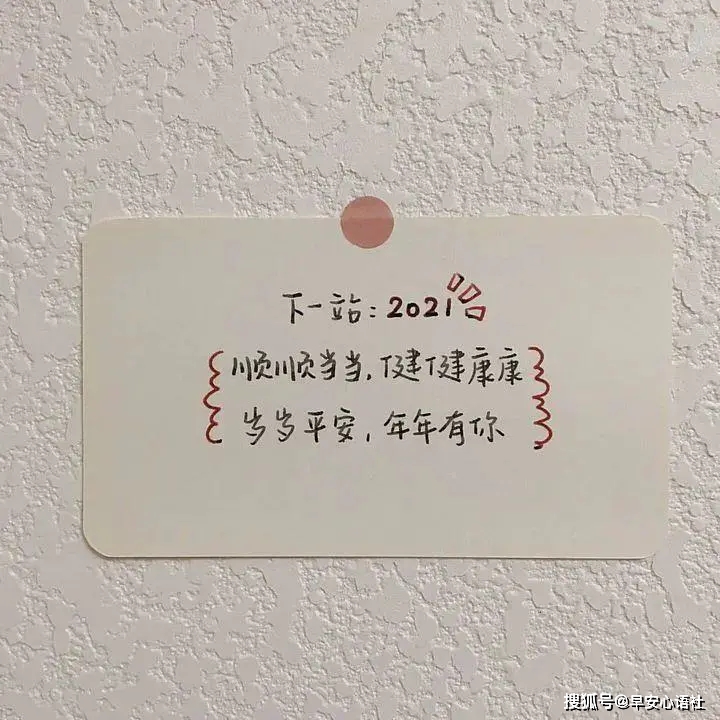 下一站：2021
顺顺当当，健健康康
岁岁平安，年年有你
搜狐号@早安心语社